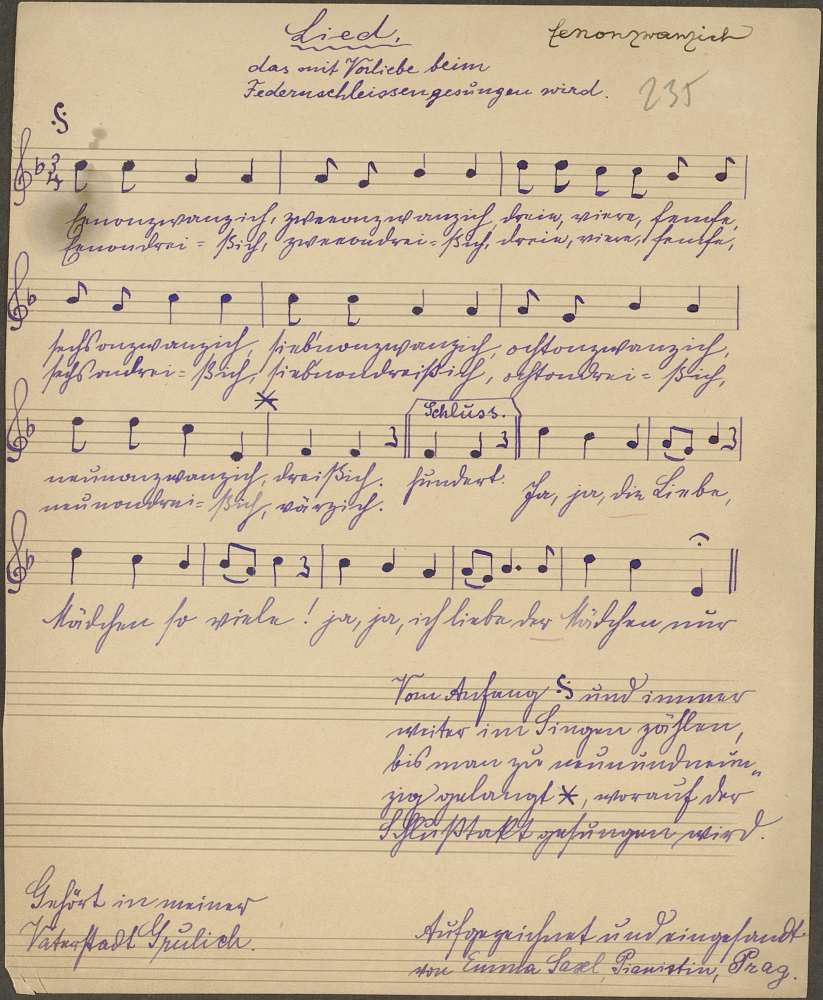 Lied.
Eenonzwanzich
das mit Vorliebe beim
Federnschleissen gesungen wird.
235
Eenonzwanzich, zweeonzwanzich, dreie, viere, femfe,
Eenondrei=ßich, zweeondrei=ßich, dreie, viere, femfe,
sechsonzwanzich, siebnonzwanzich, ochtonzwanzich,
sechsondrei=ßich, siebnondreißich, ochtondrei=ßich,
Schluss.
neunonzwanzich, dreißich. hundert. Ja, ja, die Liebe,
neunondrei=ßich, värzich.
Mädchen so viele! ja, ja, ich liebe der Mädchen nur
Vom Anfang und immer
weiter im Singen zählen,
bis man zu neunundneun„
zig gelangt, worauf der
Schlußtakt gesungen wird.
Gehört in meiner
Vaterstadt Grulich.
Aufgezeichnet und eingesandt
von Emma Saxl, Pianistin, Prag.